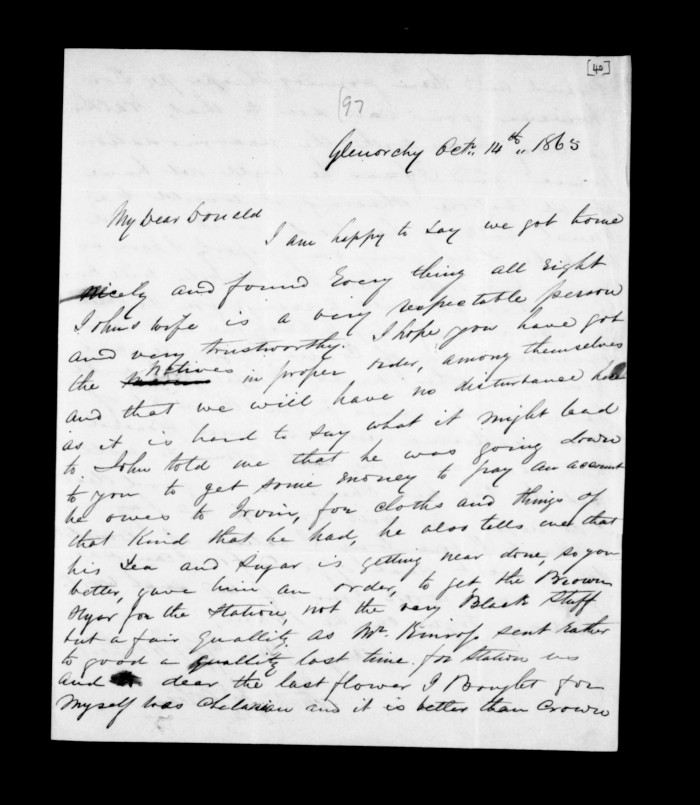 [40]
(97
Glenorchy Octr. 14th,, 1865
My Dear Donald
I am happy to say we got home
nicely and found Every thing all right
Johns wife is a very respectable person
and very trustworthy. I hope you have got
the Natives in proper order, among themselves
and that we will have no disturbance here
as it is hard to say what it might lead
to John told me that he was going down
to you to get some money to pay an account
he owes to Irvin, for cloths and things of
that Kind that he had, he also tells me that
his Tea and Sugar is getting near done, so you
better, gave him an order, to get the Brown
Sugar for the Station, not the very Black Stuff
but a fair Quallity. as Mr. Kinross sent Rather
to good a quallity last time. for Station use
and dear the last flower I Bought for
myself was Chilaian and it is better than Crown